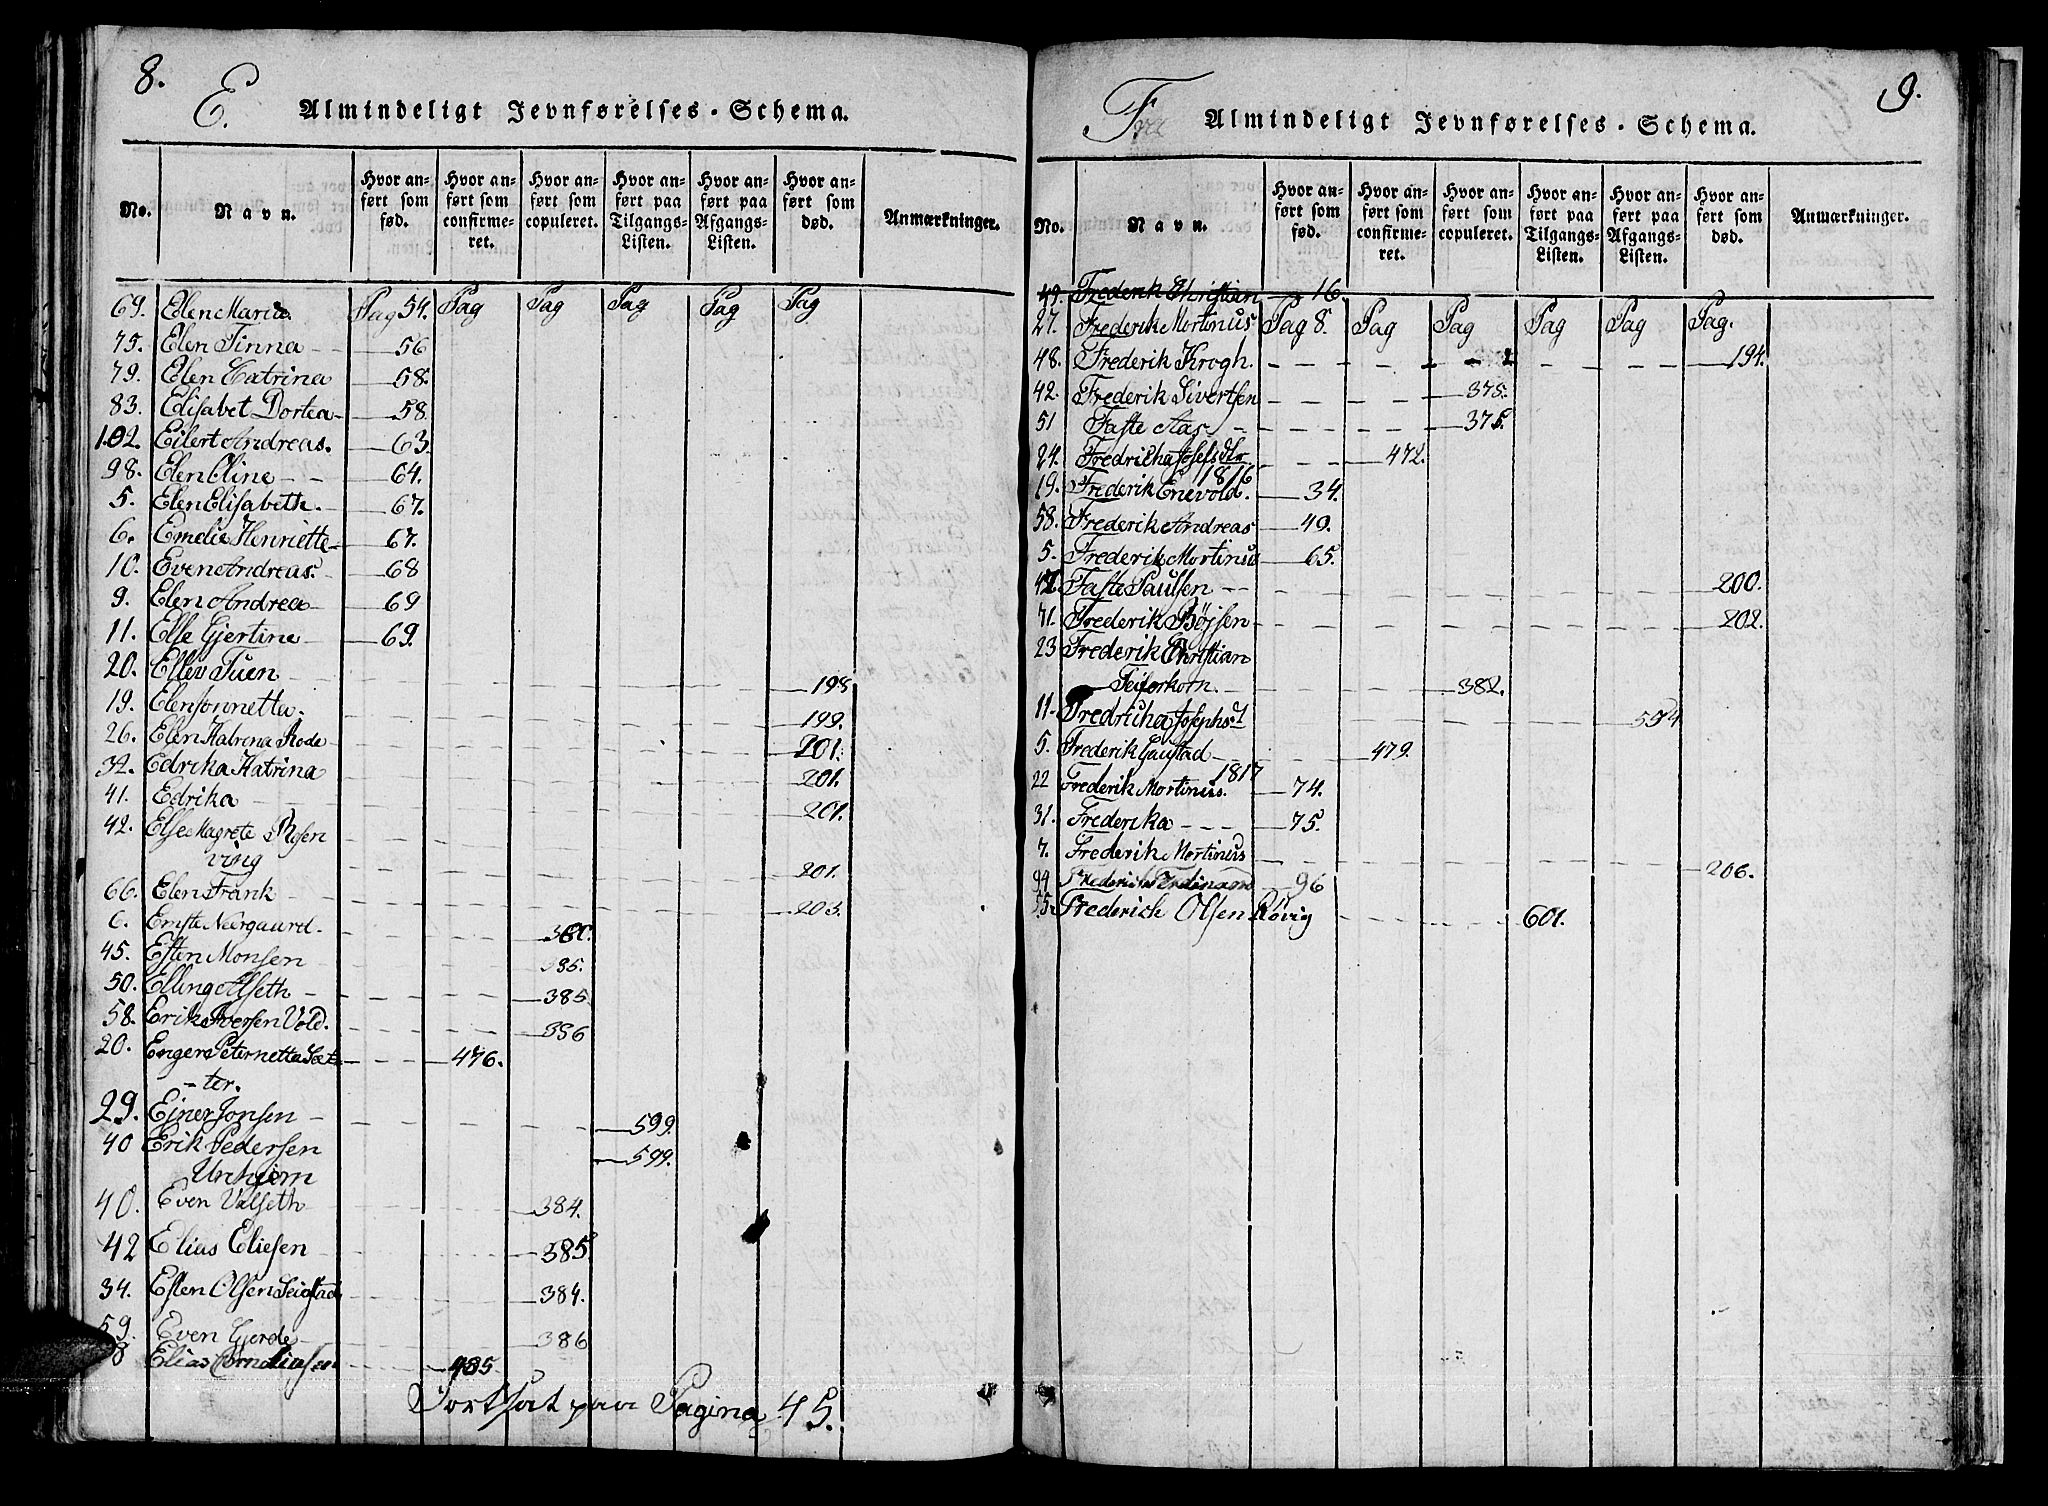 8.
E. Almindeligt Jevnførelses-Schema.
No. Navn. Hvor anført som fød. Hvor anført som confirmeret. Hvor anført som copuleret. Hvor anført paa Tilgangs-Listen. Hvor anført paa Afgangs-Listen. Hvor anført som død. Anmærkninger.
69. Elen Maria Pag 54. Pag Pag Pag Pag Pag
75. Elen Finna 56
79. Elen Catrina 58.
83. Elisabet Dortea 58.
102. Eilert Andreas. 63.
98. Elen Eline 64.
5. Elen Elisabeth. 67.
6. Emelie Henriette 67.
10. Even Andreas. 68
9. Elen Andrea 69
11. Else Gjertine 69.
20. Ellev Tuen 198.
19. Elen Jonnetta. 199.
26. Elen Katrina Rode 201.
32. Edrika Katrina 201.
41. Edrika 201.
42. Else Magrete Rosen
ving 201.
66. Elen Frank 203.
6. Ernste Neergaard.
45. Esten Monsen
50. Elling Alseth 385.
58. Erik Iversen Vold. 386
20. Enger Peternetta Sæt- 476.
ter.
29. Einer Jonsen 599.
40 Erik Pedersen 599.
Unhjem
40. Even Valseth 384.
42 Elias Eliesen 385.
34. Esten Olsen Seigstad 384.
59. Even Gjerde 386
8 Elias Corneliusen 485.
Fortsat paa Pagina 45.
9.
Fra Almindeligt Jevnførelses-Schema.
No. Navn. Hvor anført som fød. Hvor anført som confirmeret. Hvor anført som copuleret. Hvor anført paa Tilgangs-Listen. Hvor anført paa Afgangs-Listen. Hvor anført som død. Anmærkninger.
49. Frederik Christian 16.
27. Frederik Mortinus Pag 8. Pag Pag Pag Pag Pag.
48. Frederik Krogh. 194.
42. Frederik Sivertsen 375.
51 Faste Aas 375.
24. Fredricha Josefsdtr 472.
1816
19. Frederik Enevold. 34.
58. Frederik Andreas 49.
5. Frederik Mortinus 65.
42. Faste Paulsen 200.
71. Frederik Böjsen 202.
23 Frederik Christian
Feiferkorn. 382.
11. Fredricha Josephs. 594
5. Frederik Gaustad 479.
1817
22 Frederik Mortinus. 74.
31. Frederika 75.
7. Frederik Mortinus 206.
94 Frederich Ferdinand 96
55. Frederich Olsen Rövig 601.